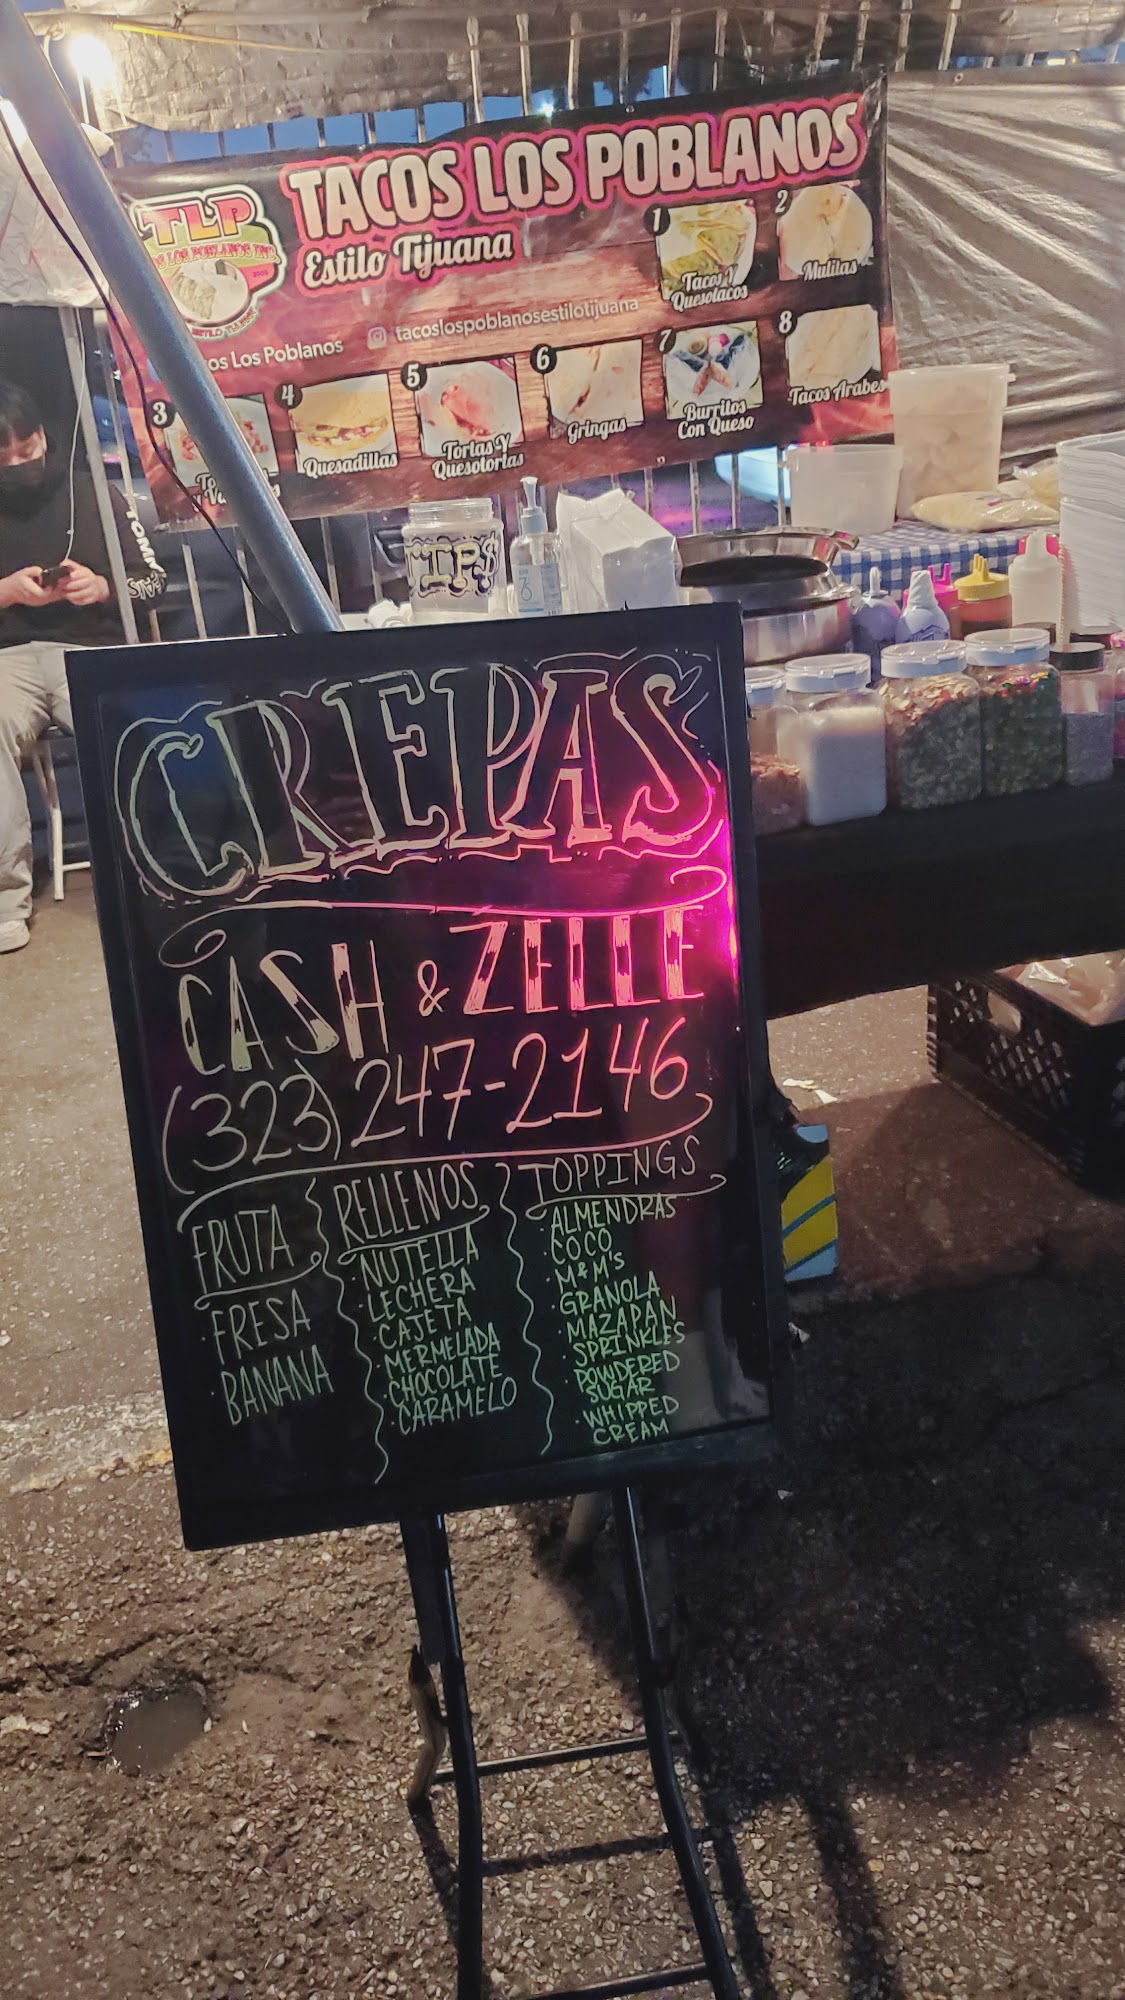 TACOS LOS POBLANOS
Estilo Tijuana
TLP
OS LOS POBLANOS INC.
ESTILO TIJUANA
os Los Poblanos
tacoslospoblanosestilotijuana
1
Tacos Y
Quesotacos
2
Mulitas
3
4
Quesadillas
5
Tortas Y
Quesotortas
6
Gringas
7
Burritos
Con Queso
8
Tacos Arabes
TOMMY
TIP$
75
CREPAS
CASH & ZELLE
(323) 247-2146
FRUTA
· FRESA
· BANANA
RELLENOS
· NUTELLA
· LECHERA
· CAJETA
· MERMELADA
· CHOCOLATE
· CARAMELO
TOPPINGS
· ALMENDRAS
· COCO
· M&M's
· GRANOLA
· MAZAPAN
· SPRINKLES
· POWDERED
SUGAR
· WHIPPED
CREAM